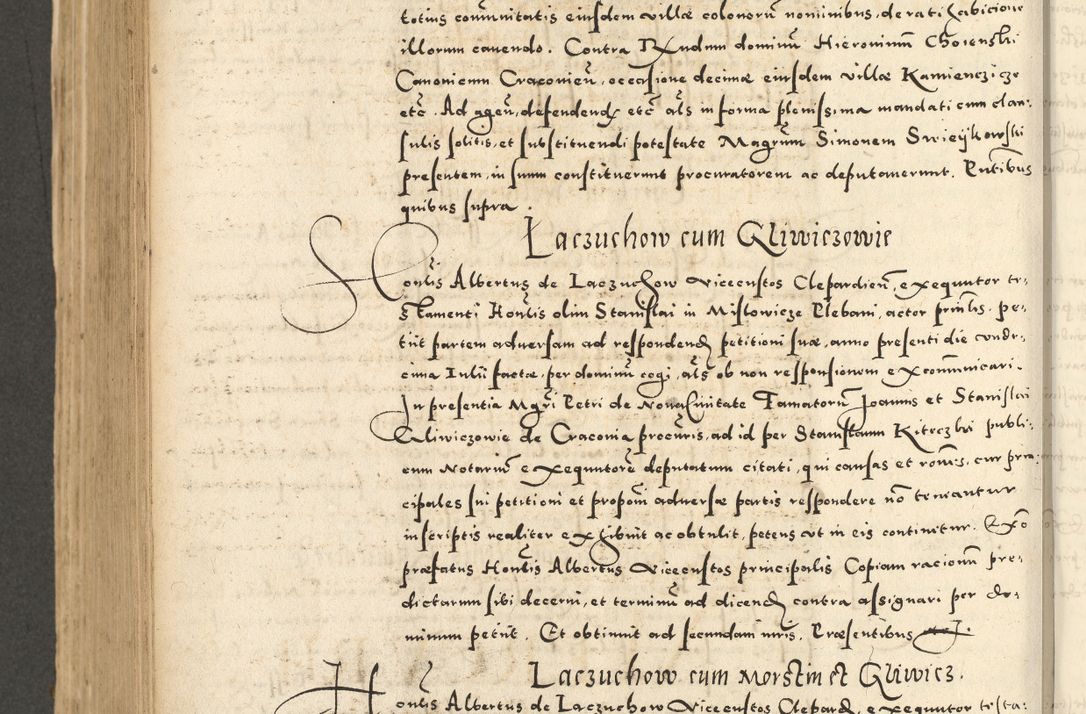 totius communitatis eiusdem villæ colonorũ nominibus, de rati habicione
illorum cauendo. Contra Rxndum dominũ Hieroninũ Choienski
Canonicum Cracovieñ, occasione decimæ eiusdem villæ Kamienczicze
etc̃. Ad ageñ, defendendũ etc̃ als̃ in forma plenissima mandati cum clau-
sulis solitis, et substituendi potestate Magrum Simonem Swieijkowski
presentem, in suum constituerunt procuratorem ac deputauerunt. Pñtibus
quibus supra.
Łaczuchow cum Gliwiczowie
Honlis Albertus de Laczuchow vicecustos Clepardieñ, exequutor te-
stamenti Honlis olim Stanislai in Mislowicze Plebani, actor prinlis. pe-
tiit partem aduersam ad respondend petitioni suæ, anno presenti die vnde-
cima Iulii factæ, per dominũ cogi, als̃ ob non responsionem excom̃unicari.
In presentia Mgri Petri de Noua Ciuitate Famatorũ Joannis et Stanislai
Gliwiczowie de Cracouia procuris, ad id per Stanislaum Kiteczki publi-
cum Notariũ exequutorẽ deputatum citati, qui causas et rones, cur prin-
cipales sui petitioni et propoñi aduersæ partis respondere nõ teneantur
in scriptis realiter exhibuit ac obtulit, petens vt in eis continetur. Exõ
præfatus Honlis Albertus vicecustos principalis Copiam racionũ pre-
dictarum sibi decerni, et terminũ ad dicend contra assignari per do-
minum petiit. Et obtinuit ad secundam iuris. Præsentibus
Laczuchow cum Morstin et Gliwicz.
Honlis Albertus de Laczuchow vicecustos Clepard, exequutor testa-